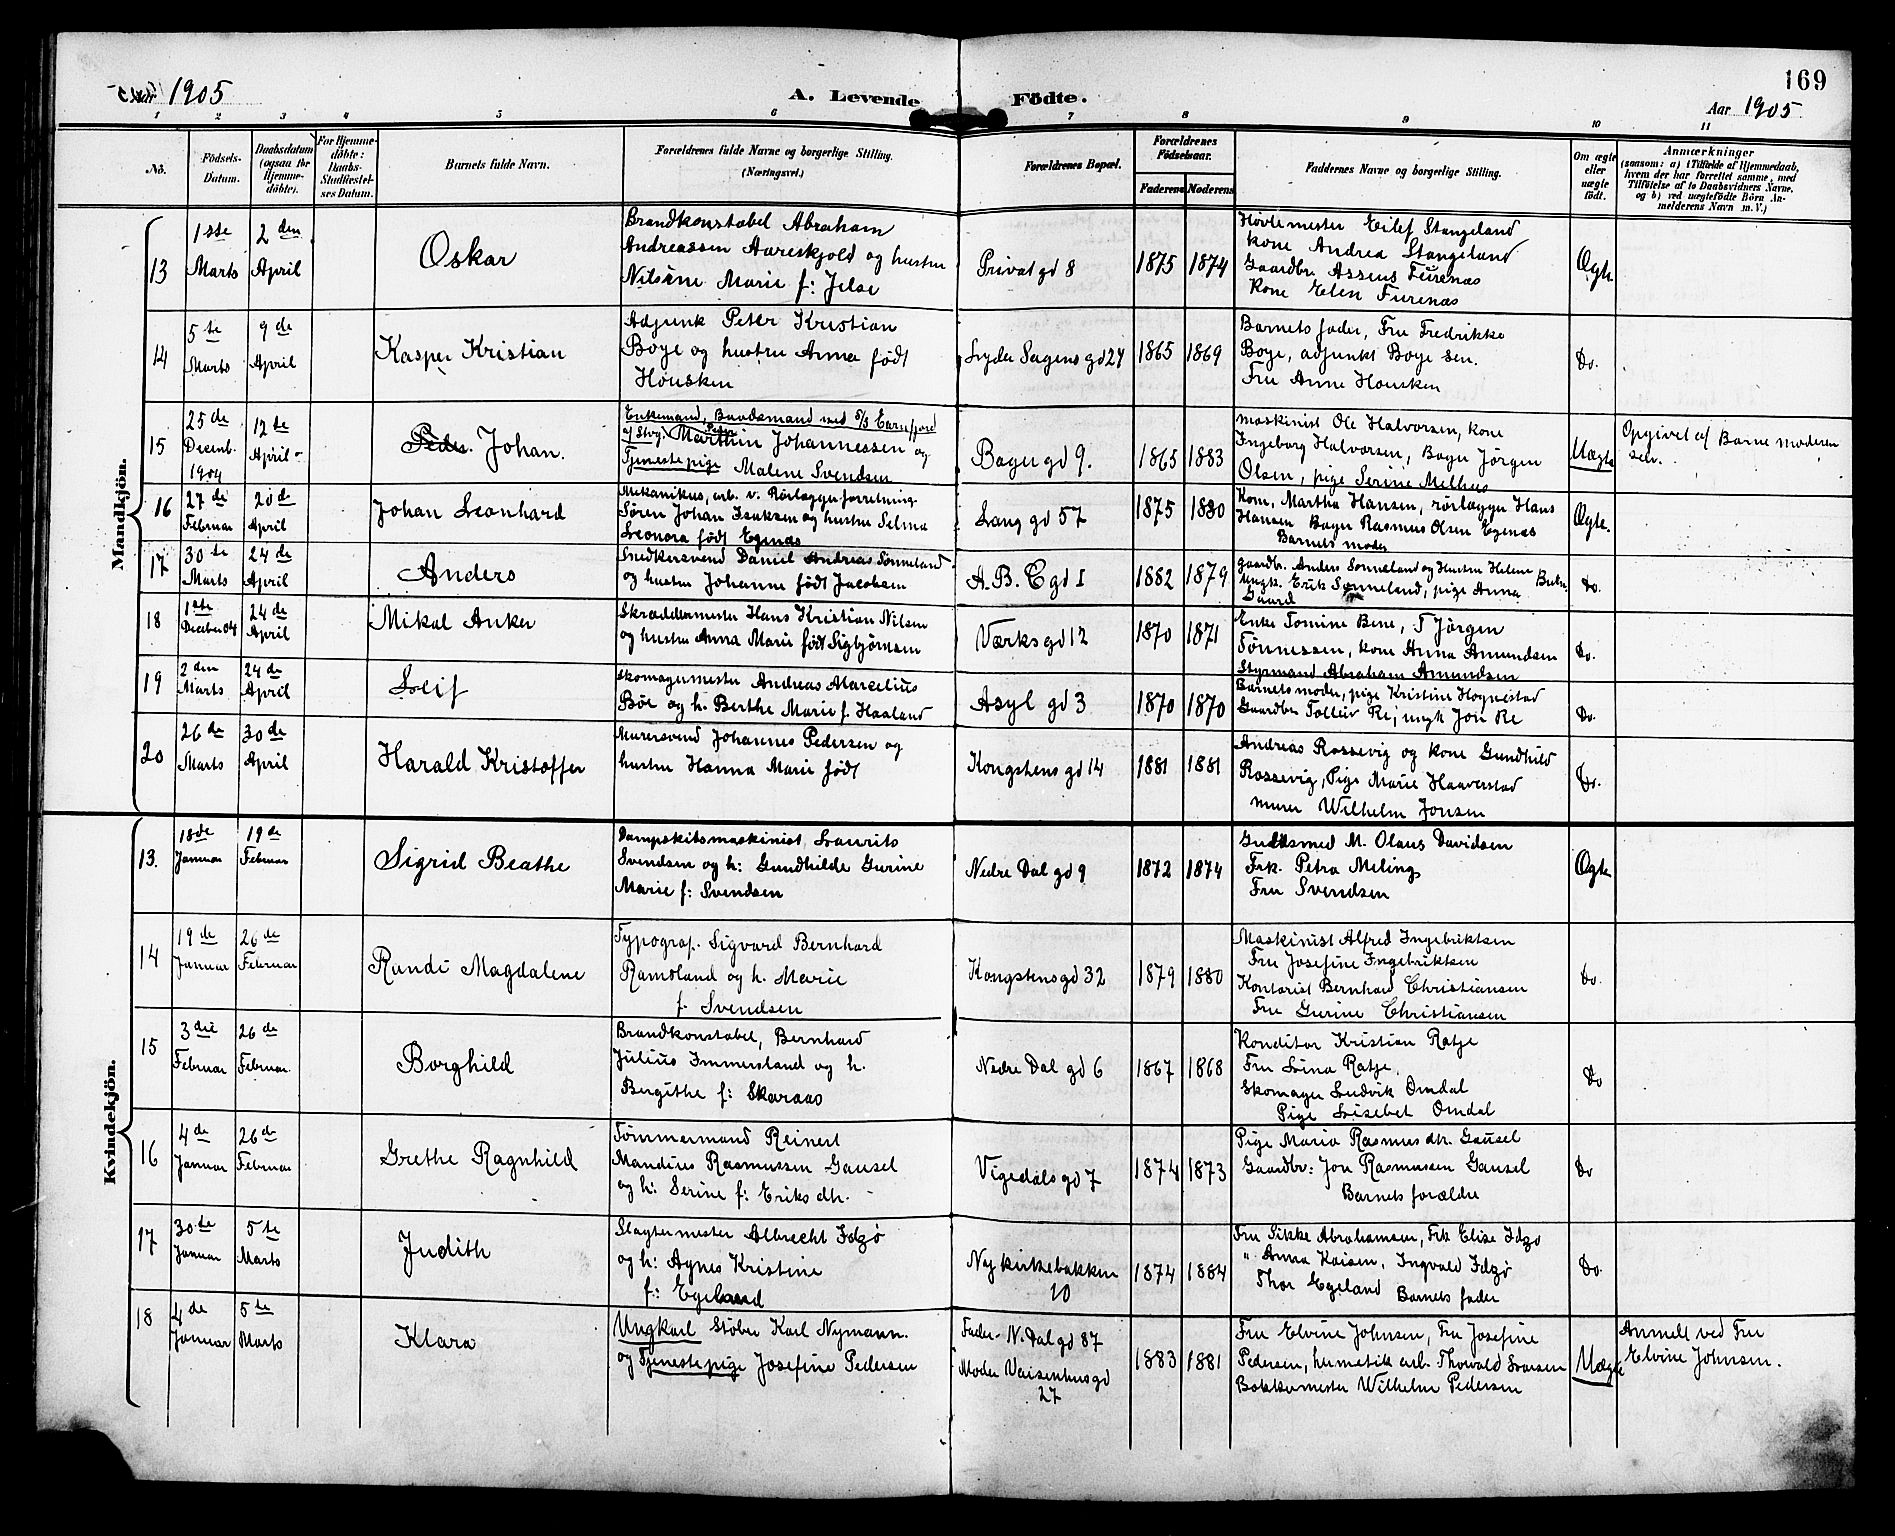 Aar 1905
A. Levende Födte.
169
Aar 1905
1 2 3 4 5 6 7 8 9 10 11
No.
Födsels-
Datum.
Daabsdatum
(ogsaa for
Hjemme-
döbte).
For Hjemme-
döbte:
Daabs-
Stadfæstel-
ses Datum.
Barnets fulde Navn.
Forældrenes fulde Navne og borgerlige Stilling.
(Næringsvei.)
Forældrenes Bopæl.
Forældrenes
Födselsaar.
Faderens Moderens
Faddernes Navne og borgerlige Stilling.
Om ægte
eller
uægte
födt.
Anmærkninger
(saasom: a) i Tilfælde af Hjemmedaab,
hvem der har forrettet samme, med
Tilföielse af to Daabsvidners Navne,
og b) ved uægtefödte Börn An-
melderens Navn m. V.)
Mandkjön.
13
1ste
Marts
2den
April
Oskar
Brandkonstabel Abraham
Andreassen Aareskjold og hustru
Nilsine Marie f: Jelse
Privat gd 8
1875 1874
Hövlemester Eilef Stangeland
kone Andrea Stangeland
Gaardbr Assens Furenas
Kone Elen Furenas
Ægte
14
5te
Marts
9de
April
Kasper Kristian
Adjunk Peter Kristian
Boye og hustru Anna født
Housken
Lyder Sagens gd 24
1865 1869
Barnets fader, Fru Fredrikke
Boye, adjunkt Boye sen.
Fru Anne Housken
Do.
15
25de
Decemb.
1904
12de
April
Peder. Johan.
Enkemand, Baadsmand med S/S
af Stvg. Peder Marthin Johannessen og
Tjenestepige Malene Svendsen
Bager gd 9.
1865 1883
Maskinist Ole Halvorsen, kone
Ingeborg Halvorsen, Bager Jørgen
Olsen, pige Serine Melhus
Uægte
Opgivet af Barnemoderen
selv.
16
27de
Februar
20de
April
Johan Leonhard
Mekanikus, arb. v. Rörlæggerforretning
Søren Johan Isaksen og hustru Selma
Leonora født Egenæs
Lang gd 57
1875 1880
Kone, Martha Hansen, rørlægger Hans
Hansen Bager Rasmus Olsen Egenæs
Barnets moder
Ægte.
17
30te
Marts
24de
April
Anders
Snedkersvend Daniel Andreas Sønneland
og hustru Johanne født Jacobsen
A. B. C gd 1
1882 1879
gaardbr. Anders Sønneland og Hustru Helene
Ungk. Erik Sønneland, pige Anna
Gaard
Do.
18
1ste
Decbr 04
24de
April
Mikal Anker
Skræddermester Hans Kristian Nilsen
og hustru Anna Marie født Sigbjørnsen
Værks gd 12
1870 1871
Enke Tomine Bene, T Jörgen
Tønnessen, kone Anna Amundsen
Styrmand Abraham Amundsen
Do.
19
2den
Marts
24de
April
Leif
Skomagermester Andreas Marcelius
Bøe og h. Berthe Marie f. Haaland
Asyl gd 3
1870 1870
Barnets moder, pige Kristine Hognestad
Gaardbr Tolleiv Re, ungk Jon Re
Do.
20
26de
Marts
30de
April
Harald Kristoffer
Murersvend Johannes Pedersen og
hustru Hanna Marie født
Kongstens gd 14
1881 1881
Andreas Rossevig og kone Gundhild
Rossevig, Pige Marie Haaverstad
murer Wilhelm Jonsen
Do.
Kvindekjön.
13.
18de
Januar
19de
Februar
Sigrid Beathe
Dampskibsmaskinist Laurits
Svendsen og h: Gundhilde Gurine
Marie f: Svendsen
Nedre Dal gd 9
1872 1874
Guldsmed M. Olaus Davidsen
Frk. Petra Meling
Fru Svendsen
Ægte
14
19de
Januar
26de
Februar
Randi Magdalene
Typograf. Sigvard Bernhard
Ramsland og h. Marie
f. Svendsen
Kongstens gd 32
1879 1880
Maskinist Alfred Ingebriktsen
Fru Josefine Ingebriktsen
Kontorist Bernhard Christiansen
Fru Gurine Christiansen
Do.
15
3die
Februar
26de
Februar.
Borghild
Brandkonstabel, Bernhard
Julius Immersland og h.
Bergithe f: Skaraas
Nedre Dal gd 6
1867 1868
Konditor Kristian Ratje
Fru Lina Ratje.
Skomager Ludvik Omdal
Pige Lisebet Omdal
Do
16
4de
Januar
26de
Februar
Grethe Ragnhild
Tømmermand Reinert
Mandius Rasmussen Gausel
og h: Serine f: Eriks dtr.
Vigedals gd 7
1874 1873
Pige Maria Rasmus dtr. Gausel
Gaardbr: Jon Rasmussen Gausel
Barnets forældre
Do
17
30te
Januar
5te
Marts
Judith
Slagtermester Albrecht Idzø
og h: Agnes Kristine
f: Egeland
Ny kirkebakken
10
1874 1884
Fru Sikke Abrahamsen, Frk Elise Idzø
" Anna Kaisen, Ingvald Idzø
Thor Egeland Barnets fader
Do.
18
4de
Januar
5te
Marts
Klara
Ungkarl Støber Karl Nymann.
og Tjenestepige Josefine Pedersen
Fader - N. Dal gd 87
Moder Vaisenhus gd
27
1883 1881
Fru Elvine Johnsen, Fru Josefine
Pedersen, hermetik arb. Thorvald Larsen
Bokkermester Wilhelm Pedersen
Uægte
Anmeldt ved Fru
Elvine Johnsen.